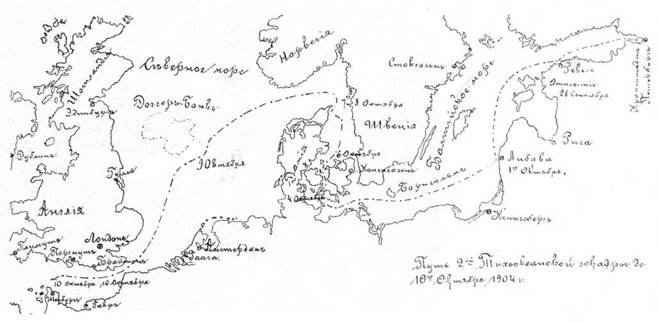 Сѣверное море
Норвегія
Шотландія
Эдинбургъ
Доггеръ-Банка
Стокгольмъ
Балтійское море
Ревель
28 Сентября
Кронштадтъ
Петербургъ
Швеція
7-8 Октября
Дублинъ
Гулль
9 Октября
Данія
6 Октября
Копенгагенъ
4 Октября
Борнгольмъ
Рига
Либава
1го Октября.
Англія
Лондонъ
Плимутъ
Портсмутъ
Брайтонъ
Амстердамъ
Гаага
Кенигсбергъ
10 Октября 10 Октября
Шербургъ
Гавръ
Путь 2ой Тихоокеанской эскадры до
10го Октября 1904 г.